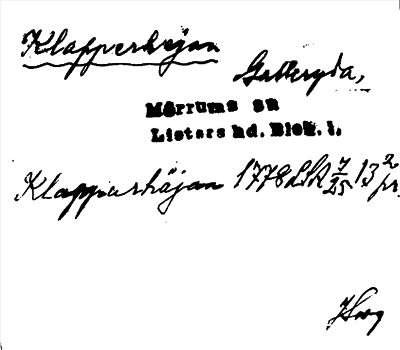 Klapperhejan
Galleryda,
Mörrums sn
Listers hd. Blek. l.
Klapparhäjan 1778 LSA 7/25 13 2 pr.